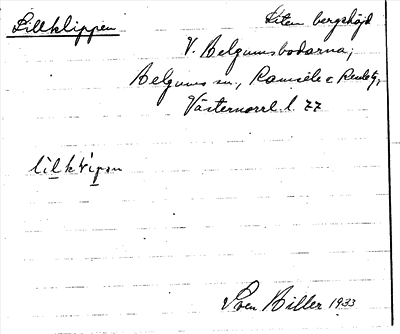 Lillklippen
Liten bergshöjd
V. Helgumsbodarna,
Helgums sn., Ramsele o Resele tg,
Västernorrl. l. ZZ
Sven Hiller 1933